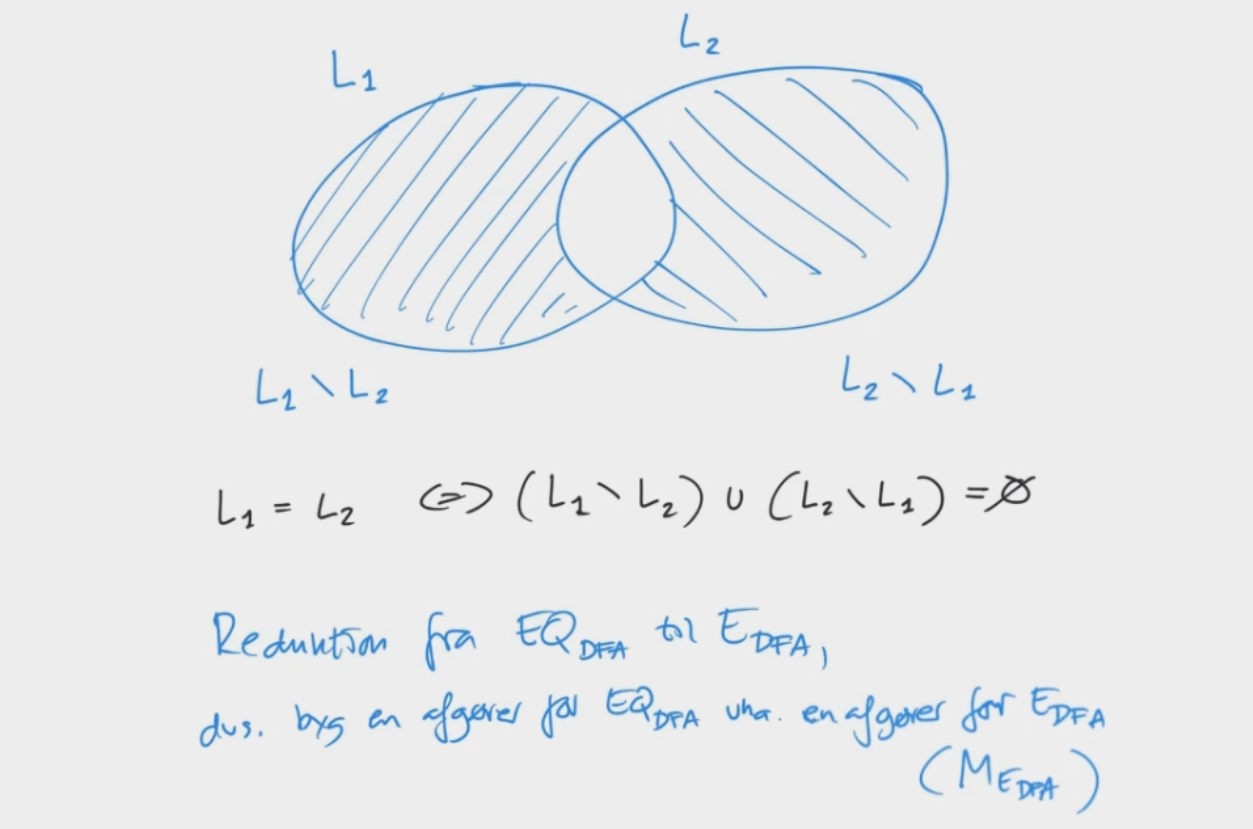 L₁
L₂
L₁ \ L₂
L₂ \ L₁
L₁ = L₂ ⇔ (L₁ \ L₂) ∪ (L₂ \ L₁) = ∅
Reduktion fra EQ_DFA til E_DFA,
dvs. byg en afgører for EQ_DFA vha. en afgører for E_DFA
(M_E_DFA)